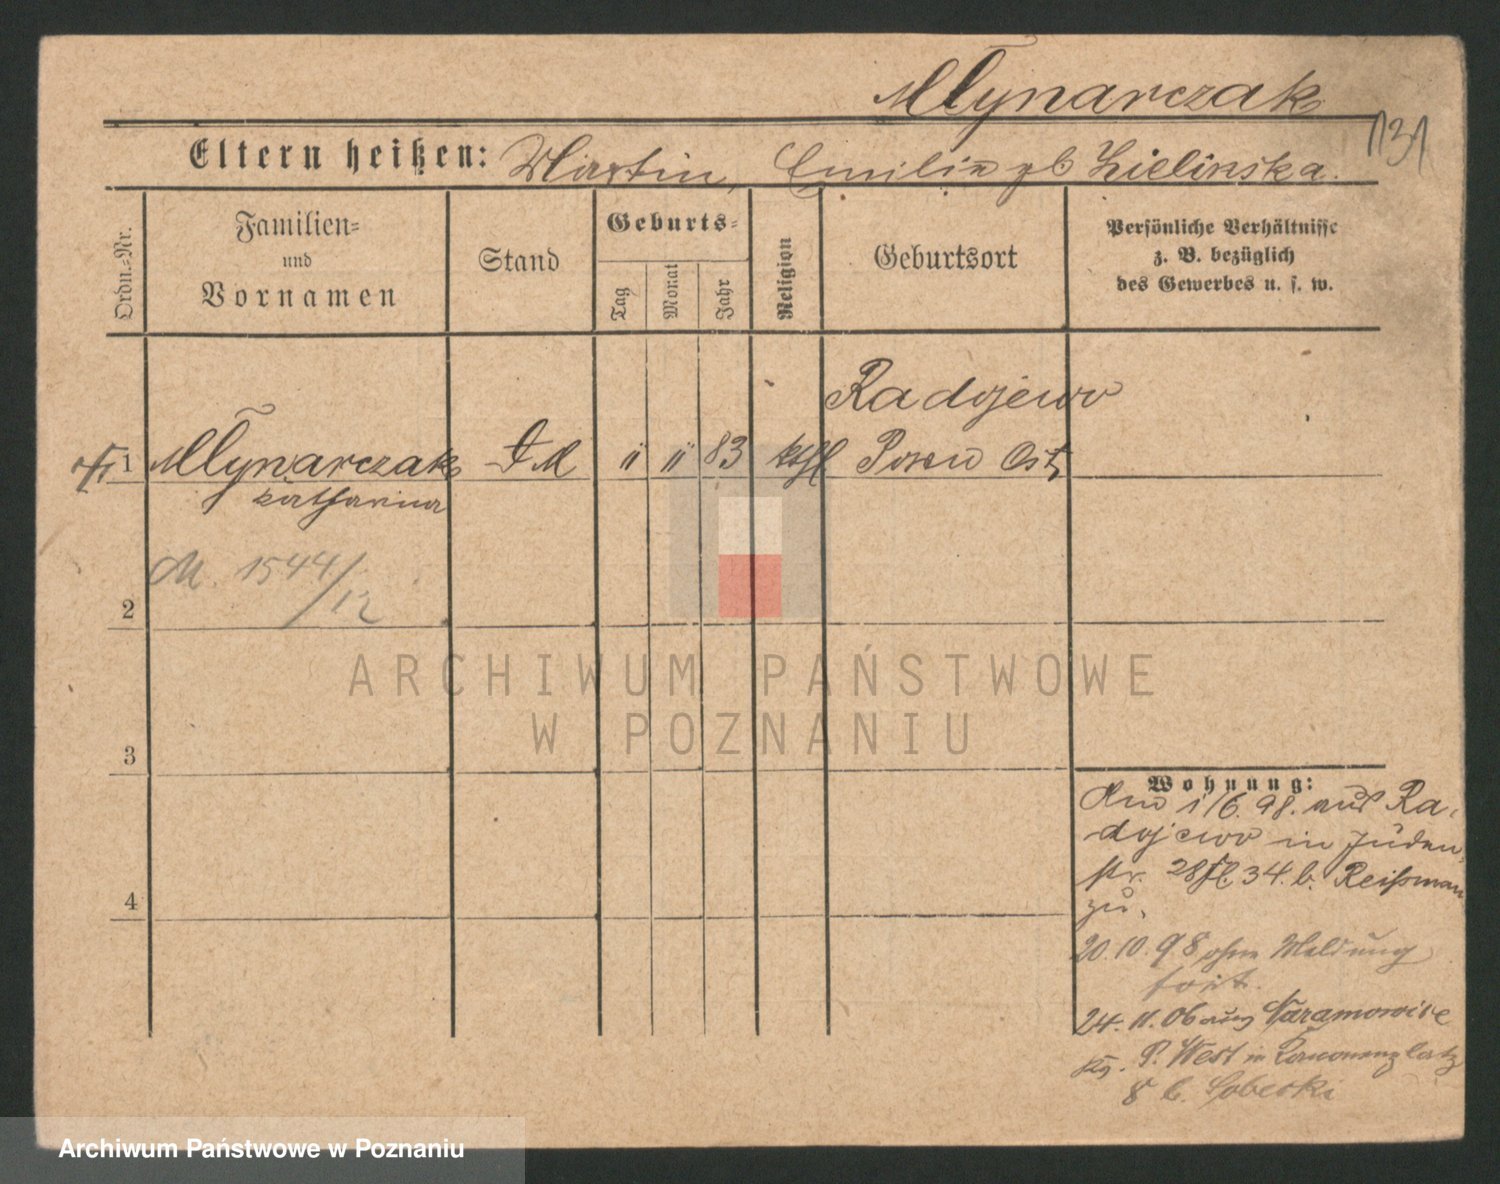 Młynarczak
131
Eltern heißen: Martin, Emilia gb Zielinska.
Ordn.-Nr.
Familien-
und
Vornamen
Stand
Geburts-
Tag
Monat
Jahr
Religion
Geburtsort
Persönliche Verhältnisse
z. B. bezüglich
des Gewerbes u. s. w.
Radojewo
1 Młynarczak D M 11 11 83 kthl Posen Ost
Katharina
M. 1544/12
2
ARCHIWUM PAŃSTWOWE
W POZNANIU
3
Wohnung:
Am 1/6.98. aus Ra-
dojewo in Juden-
str. 28 34. b. Reißman
zu.
4
20.10.98 ohne Meldung
fort.
24.11.06 aus Naramowice
P. West in Kanonenplatz
8 b. Sobeski
Archiwum Państwowe w Poznaniu